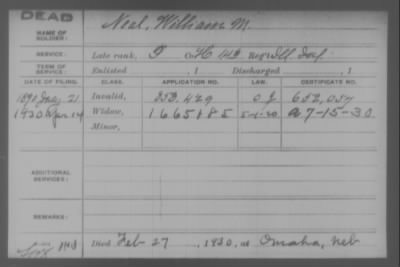 DEAD
NAME OF SOLDIER: Neal, William M.
SERVICE: Late rank, P Co. H 43 Reg't Ill. Inf.
TERM OF SERVICE: Enlisted , 1 Discharged , 1
DATE OF FILING. CLASS. APPLICATION NO. LAW. CERTIFICATE NO.
1890 July 21 Invalid, 853,429 652,054
1930 Apr 14 Widow, 1665185 5-1-20 A 7-15-30
Minor,
ADDITIONAL SERVICES:
REMARKS:
Died Feb 27, 1930, at Omaha, Neb